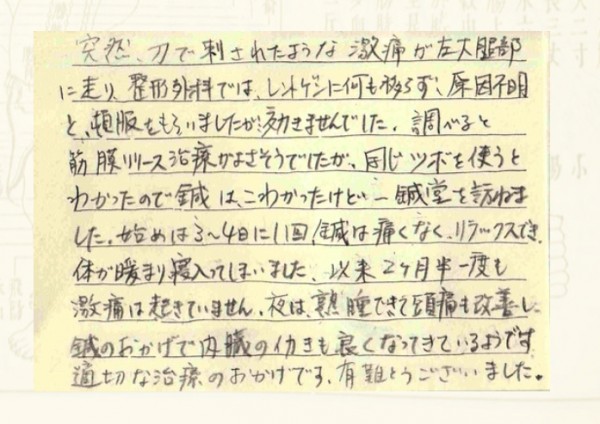 突然、刀で刺されたような激痛が左大腿部
に走り、整形外科では、レントゲンに何も移らず、原因不明
と、頓服をもらいましたが効きませんでした。調べると
筋膜リリース治療がよさそうでしたが、同じツボを使うと
わかったので鍼は、こわかったけど一鍼堂を訪ねま
した。始めは3〜4日に1回、鍼は痛くなく、リラックスでき、
体が暖まり寝入ってしまいました、以来2ヶ月半一度も
激痛は起きていません、夜は、熟睡できて頭痛も改善し
鍼のおかげで内臓の働きも良くなってきているようです
適切な治療のおかげです、有難とうございました。